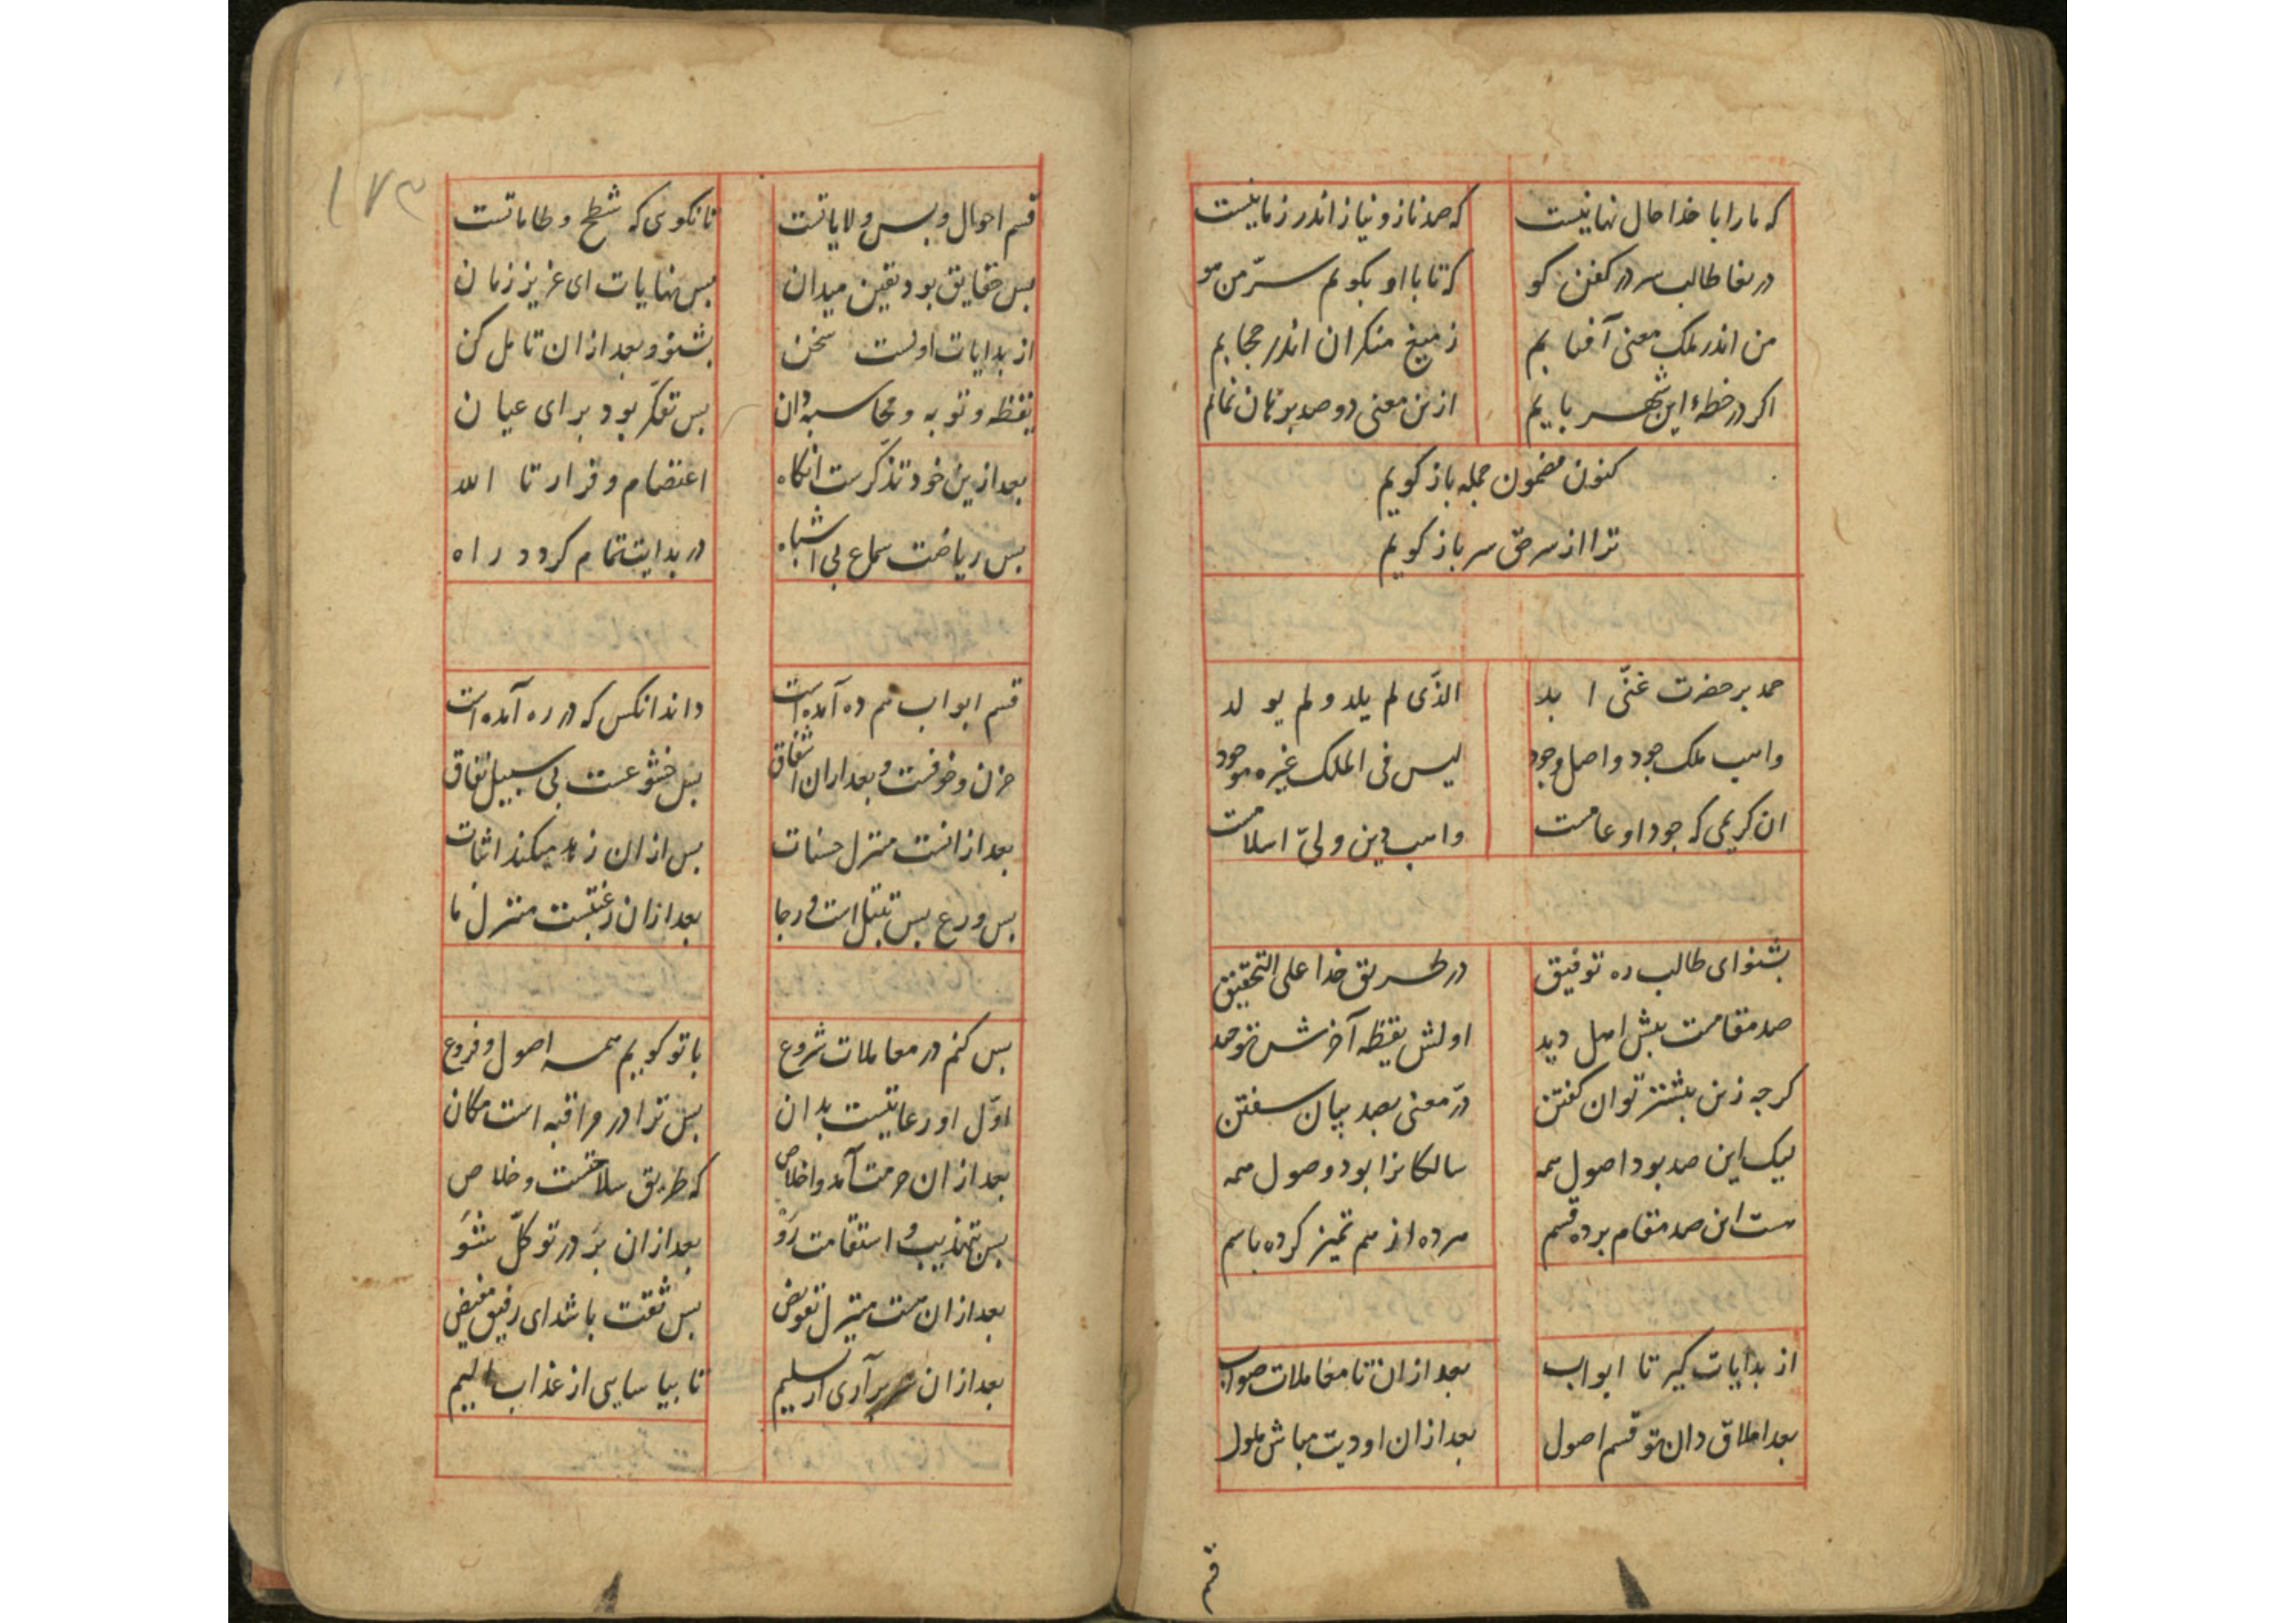 که ما را با خدا حال نهانیست که صد ناز و نیاز اندر زمانیست
دریغا طالب سر در کفن کو که تا با او بگویم سرّ من مو
من اندر ملک معنی آفتابم ز میغ منکران اندر حجابم
اگر در خطهٔ این شهر بایم ازین معنی دو صد برهان نمایم
کنون مضمون جمله باز گویم
ترا از سر حق سر باز گویم
حمد بر حضرت غنّی ابد الذّی لم یلد و لم یولد
واهب ملک جود و اصل وجود لیس فی الملک غیره موجود
ان کریمی که جود او عامست واهب دین و لیّ اسلامست
بشنو ای طالب ره توفیق در طریق خدا علی التحقیق
صد مقامست پیش اهل دید اولش یقظه آخرش توحید
گرچه زین بیشتر توان گفتن درّ معنی بصد بیان سفتن
لیک این صد بود اصول همه سالکانرا بود وصول همه
هست این صد مقام بر ده قسم هر ده از هم تمیز کرده باسم
از بدایات گیر تا ابواب بعد ازان تا معاملات صواب
بعد اخلاق دان تو قسم اصول بعد ازان اودیت مباش ملول
قسم
۱۷۳
قسم احوال و بس ولایاتست تا نگوی که شطح و طاماتست
بس حقایق بود یقین میدان بس نهایات ای عزیز زمان
از بدایات اولست سخن بشنو و بعد ازان تامل کن
یقظه و توبه و محاسبه دان بس تفکّر بود برای عیان
بعد ازین خود تذکّرست انگاه اعتصام و فرار تا الله
بس ریاضت سماع بی اشباه در بدایت تمام گردد راه
قسم ابواب هم ده آمده است داند انکس که در ره آمده است
حزن و خوفست و بعد ازان اشفاق بس خشوعست بی سبیل نفاق
بعد ازانست منزل حسنات بس ازان زهد میکند اثبات
بس ورع بس تبتل است و رجا بعد ازان رغبتست منزل ما
بس کنم در معاملات شروع با تو گوییم همه اصول و فروع
اوّل او رعایتست بدان بس ترا در مراقبه است مکان
بعد ازان حرمت آمد و اخلاص که طریق سلامتست و خلاص
بس تهذیب و استقامت رَوْ بعد ازان بَر در توکّل شَوْ
بعد ازان هست منزل تفویض بس ثقت باشد ای رفیق مفیض
بعد ازان سر برآری از تسلیم تا بیاسایی از عذاب الیم